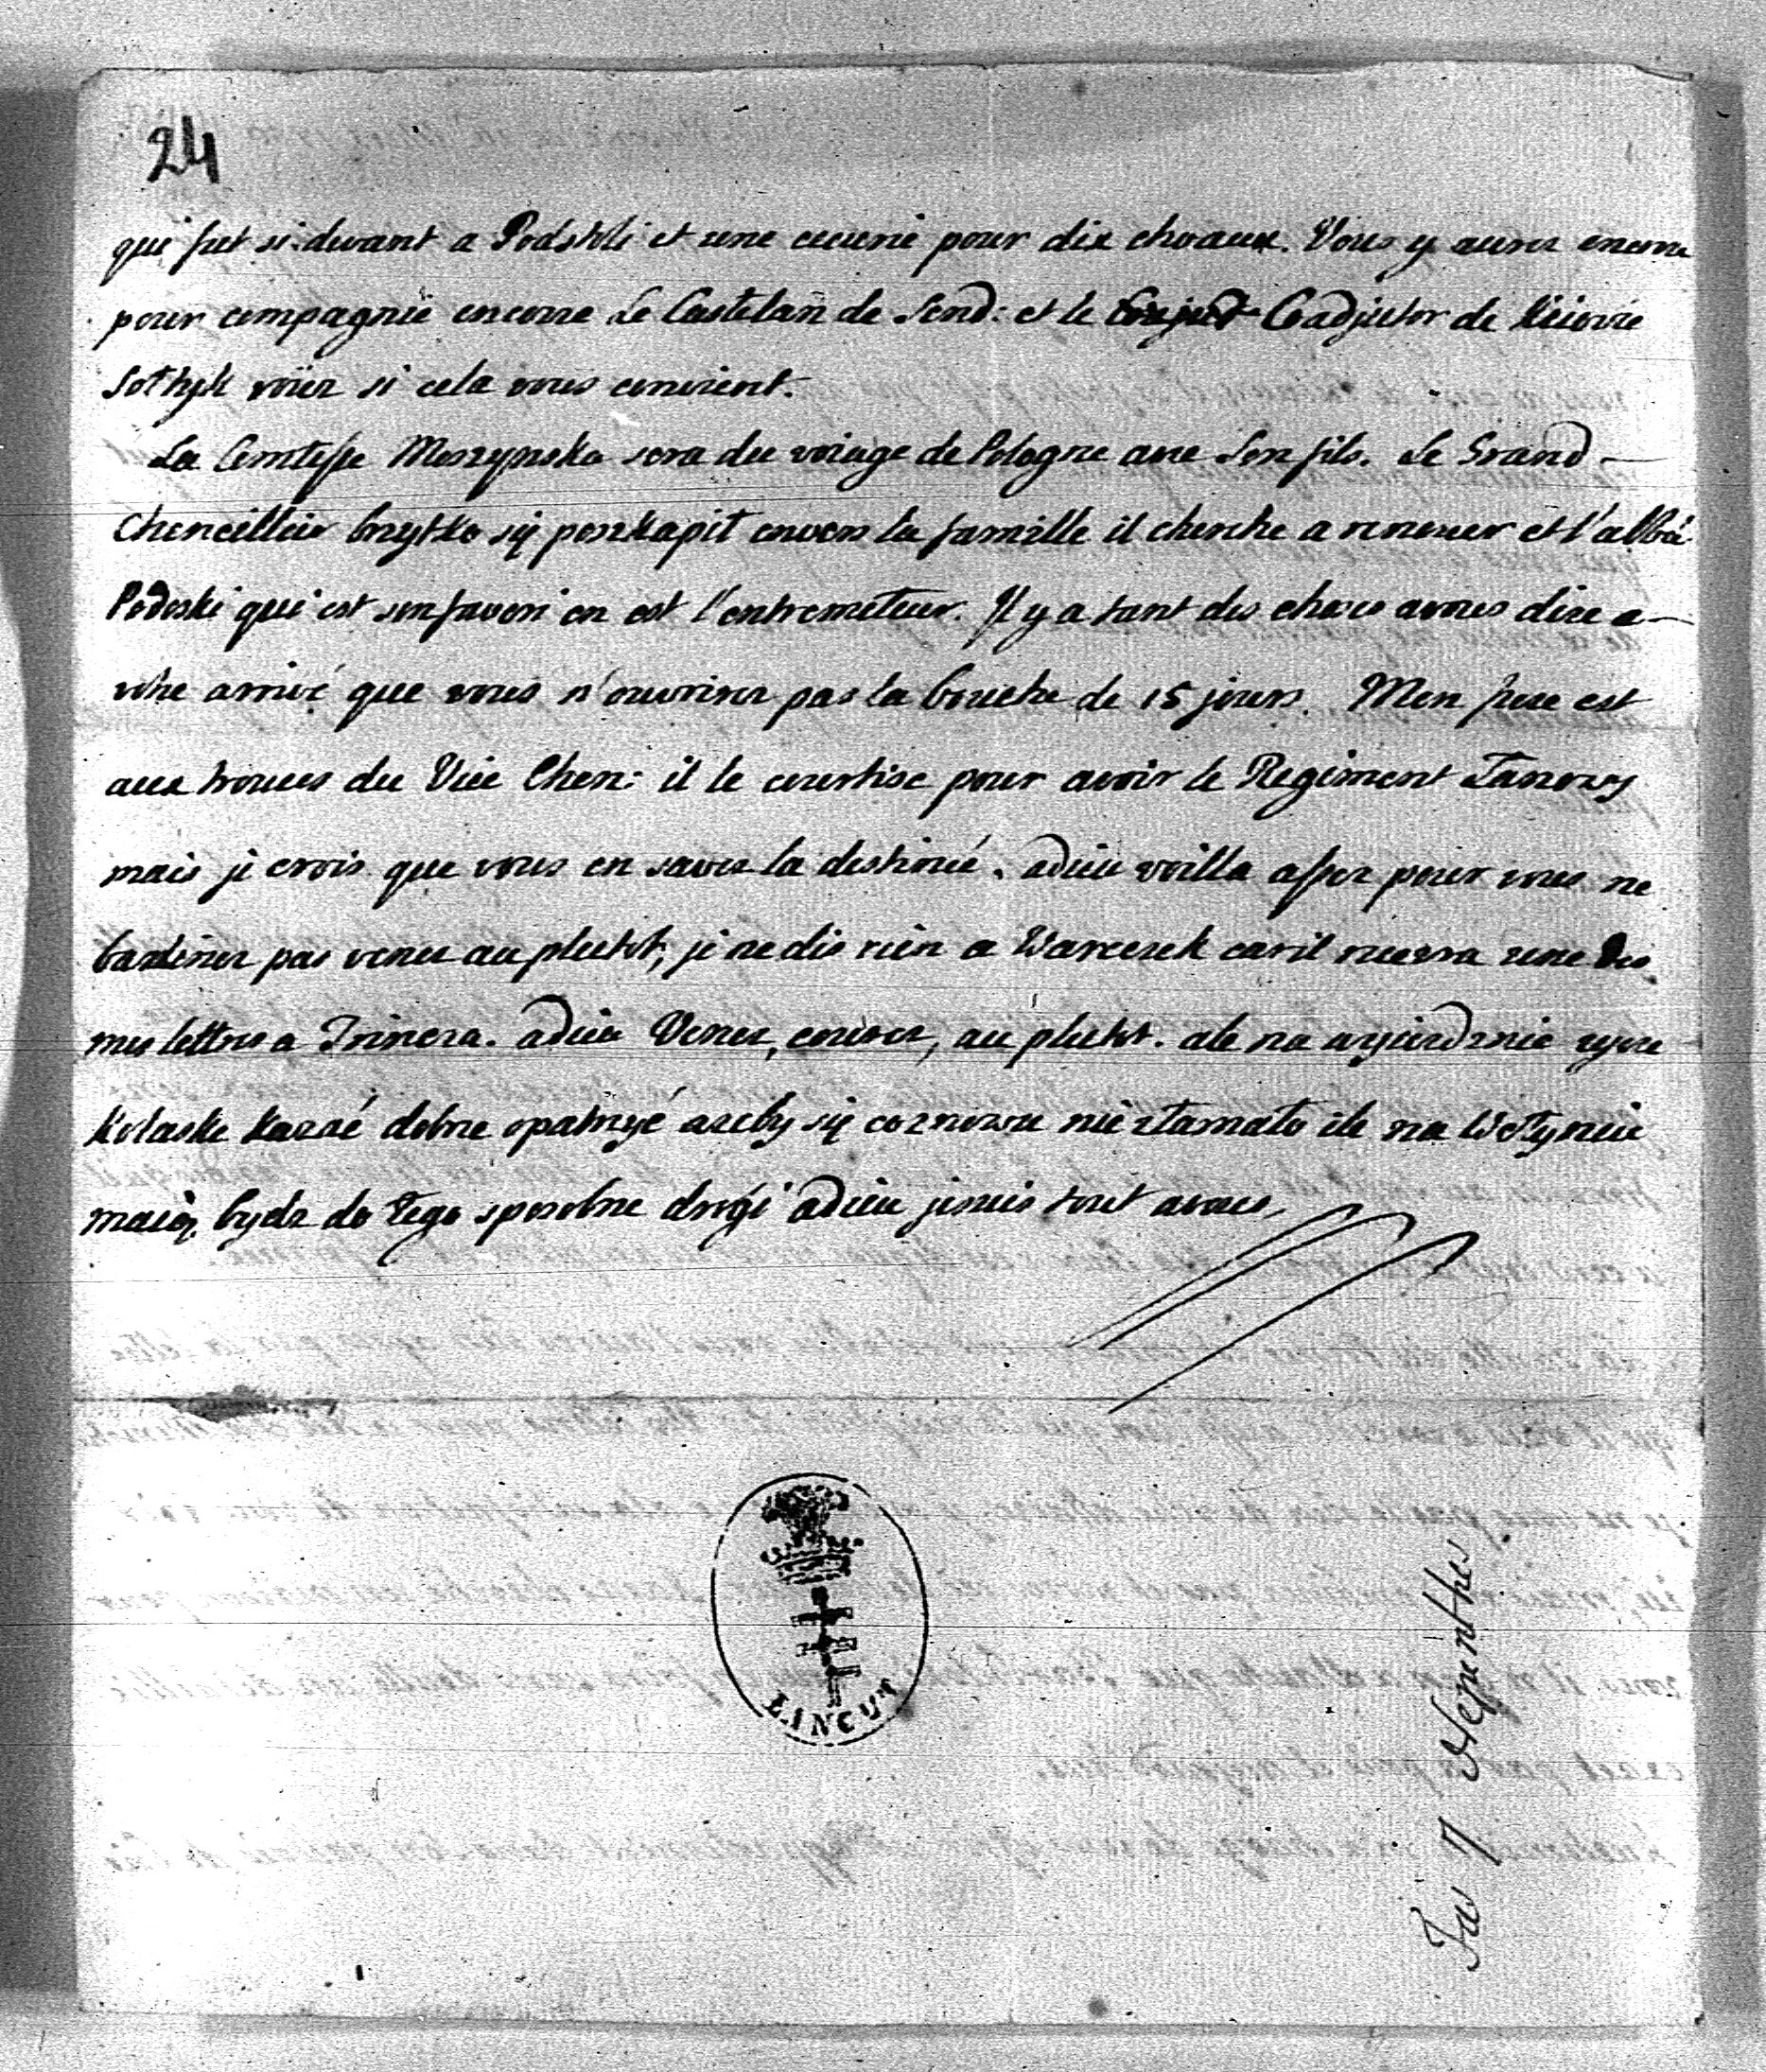 24
qui fut si: devant a Podstoli et une ecurie pour dix chvaux. Vous y aurez encorre
pour compagnie encorre Le Castelan de Send: et le Coadjutor de Kiiovie
Sołtyk voiez si cela vous convient.
La Comtesse Moszynska sera du voiage de Pologne avec Son fils. Le Grand
Chencillier brzytko się poszkapił envers la famille il cherche a renouer et l'abbé
Podoski qui est son favori en est l'entremeteur. Il y a tant des choses a vous dire a
votre arrivé que vous n'ouvrirez pas la bouche de 15 jours. Mon frere est
aux trouses du Vice Chen: il le courtise pour avoir le Regiment
mais je crois que vous en savez la destinée. adieu voilla assez pour vous ne
badinez pas venez au plutot, je ne dis rien a Warcezek car il recevra une des
mes lettres a . adieu Venez, courez, au plutot. ale na wyiezdnie
Kolaske kazać dobrze opatrzyć azeby się co znowu nie złamało ile na Wołyniu
maią bydz do tego sposobne drogi adieu je suis tout a vous
ŁAŃCUT
Fas 7 Nepenthes